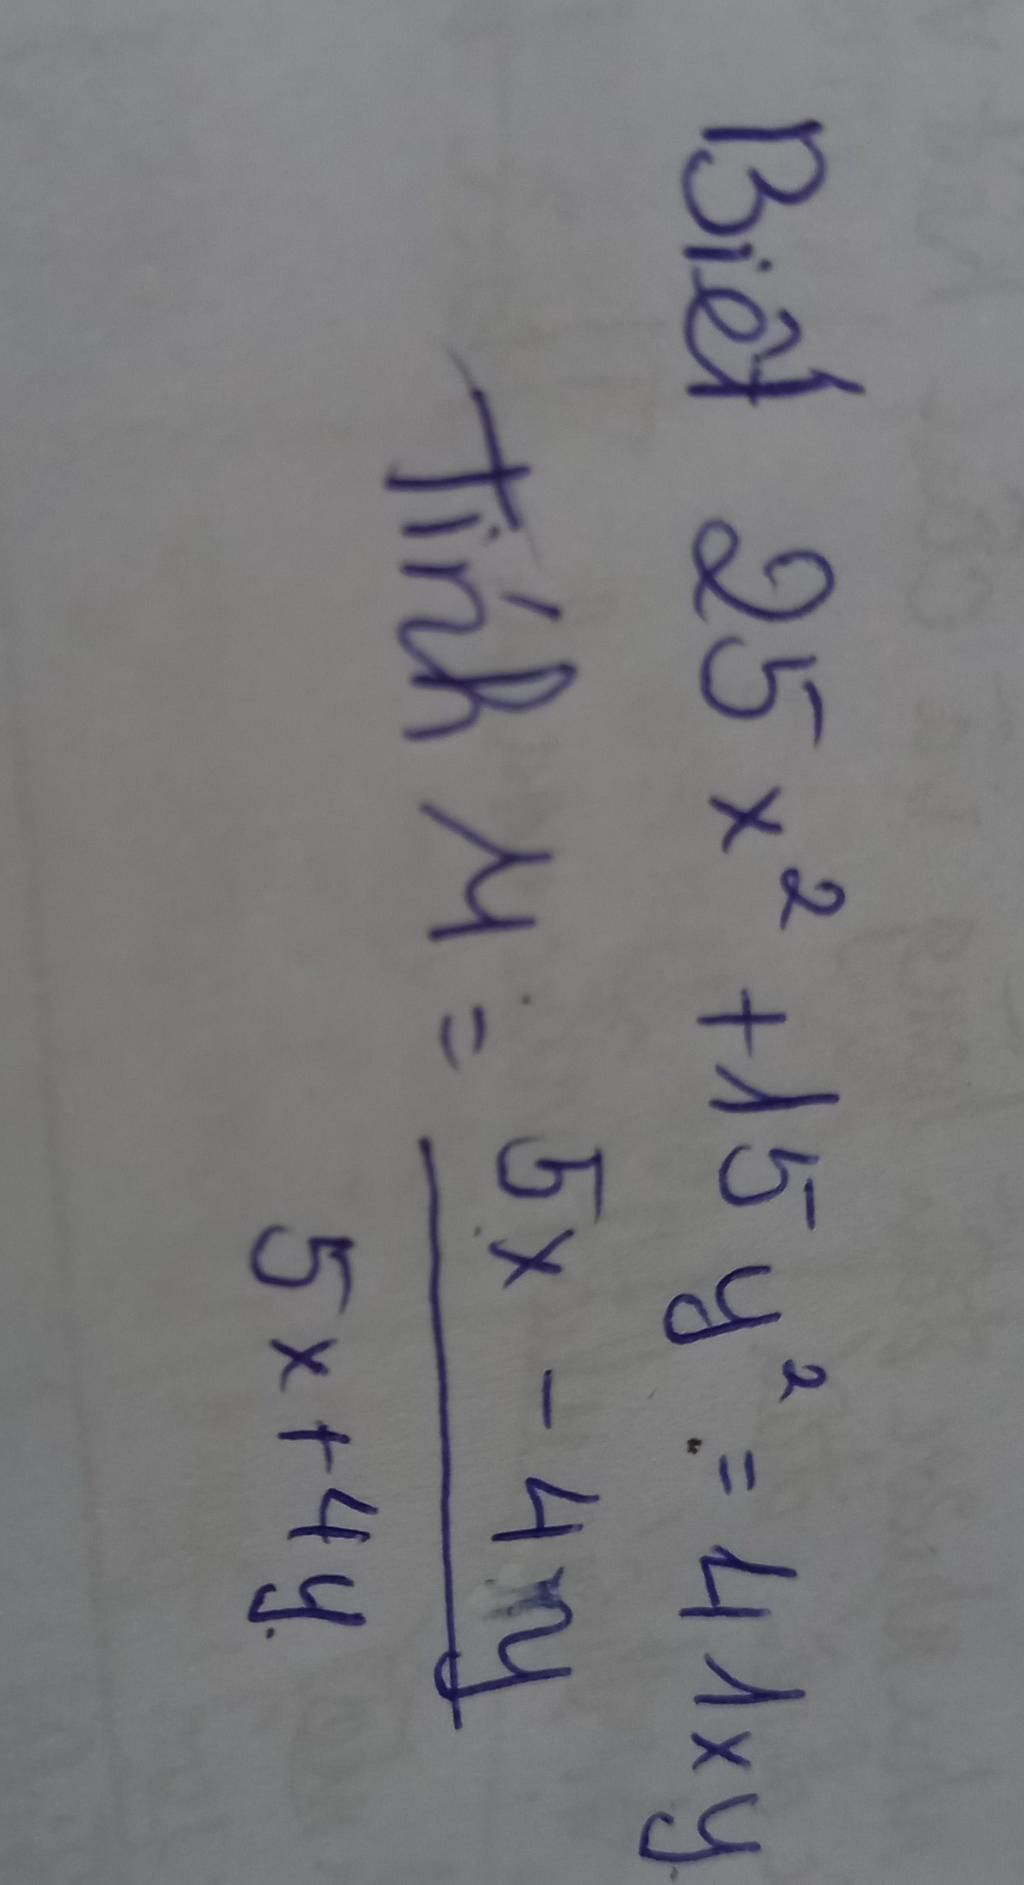 Biết 25x² + 15y² = 41xy
Tính M = 5x - 4y
5x + 4y